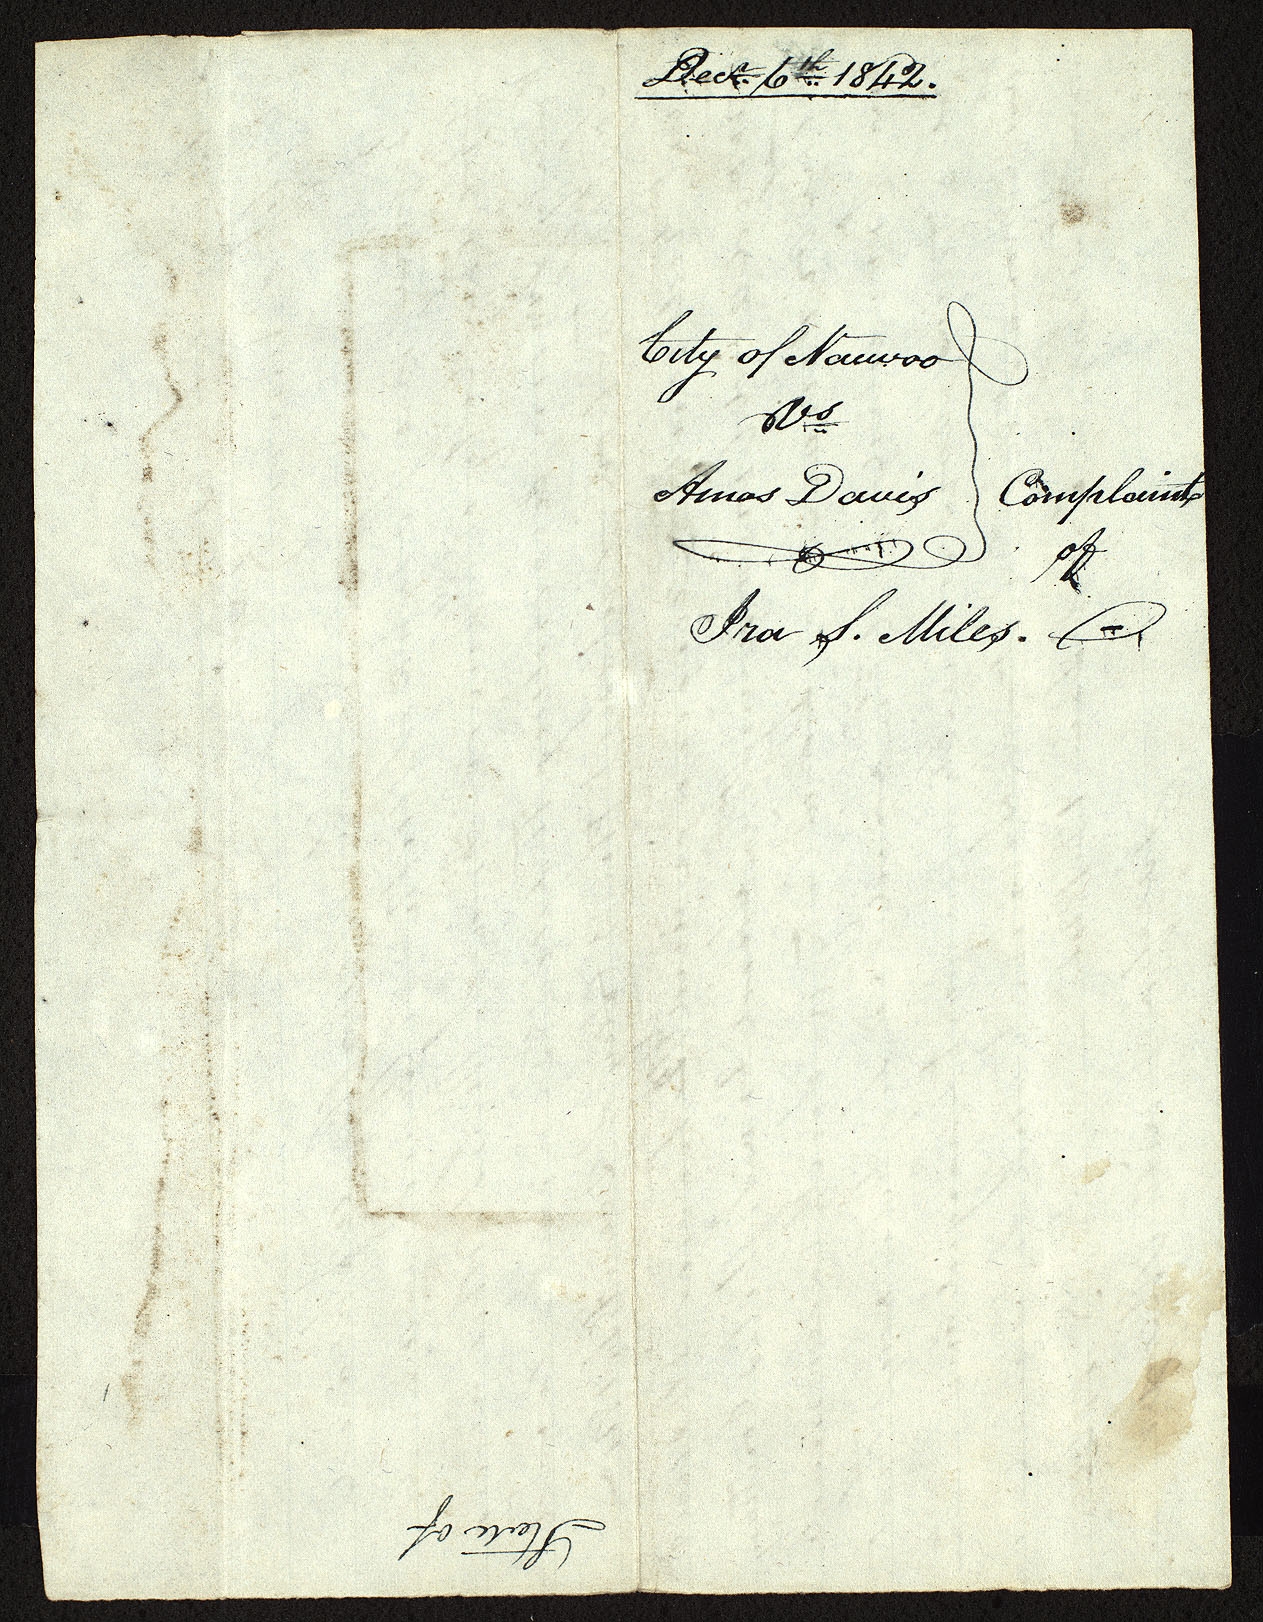 Decr. 6th. 1842.
City of Nauvoo
Vs
Amos Davis } Complaint
of
Ira S. Miles.
State of